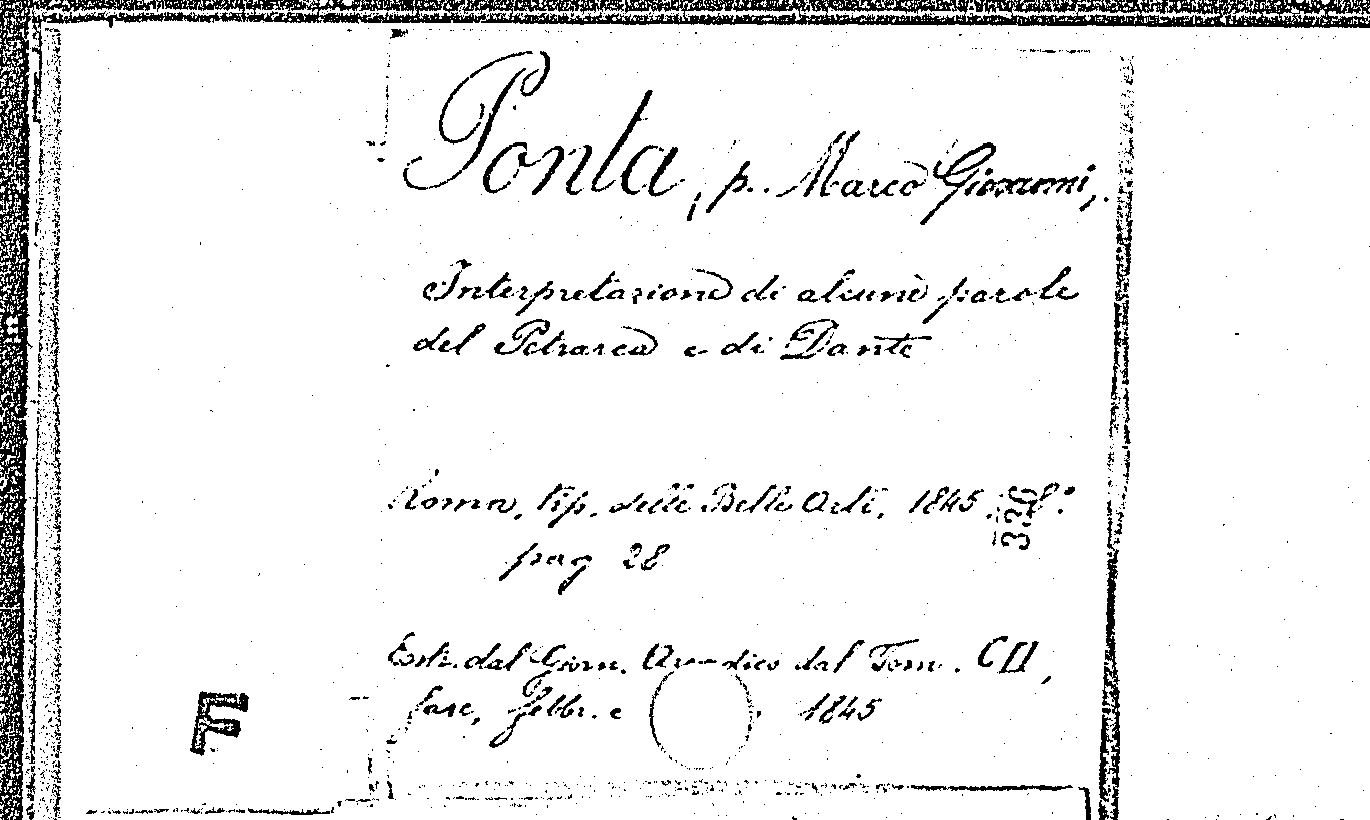 Ponta, p. Marco Giovanni,
Interpretazione di alcune parole
del Petrarca e di Dante
Roma, tip. delle Belle Arti, 1845. 8.°
336
pag 28
Estr. dal Giorn. dal Tom. CII,
fasc, febbr. e 1845
F